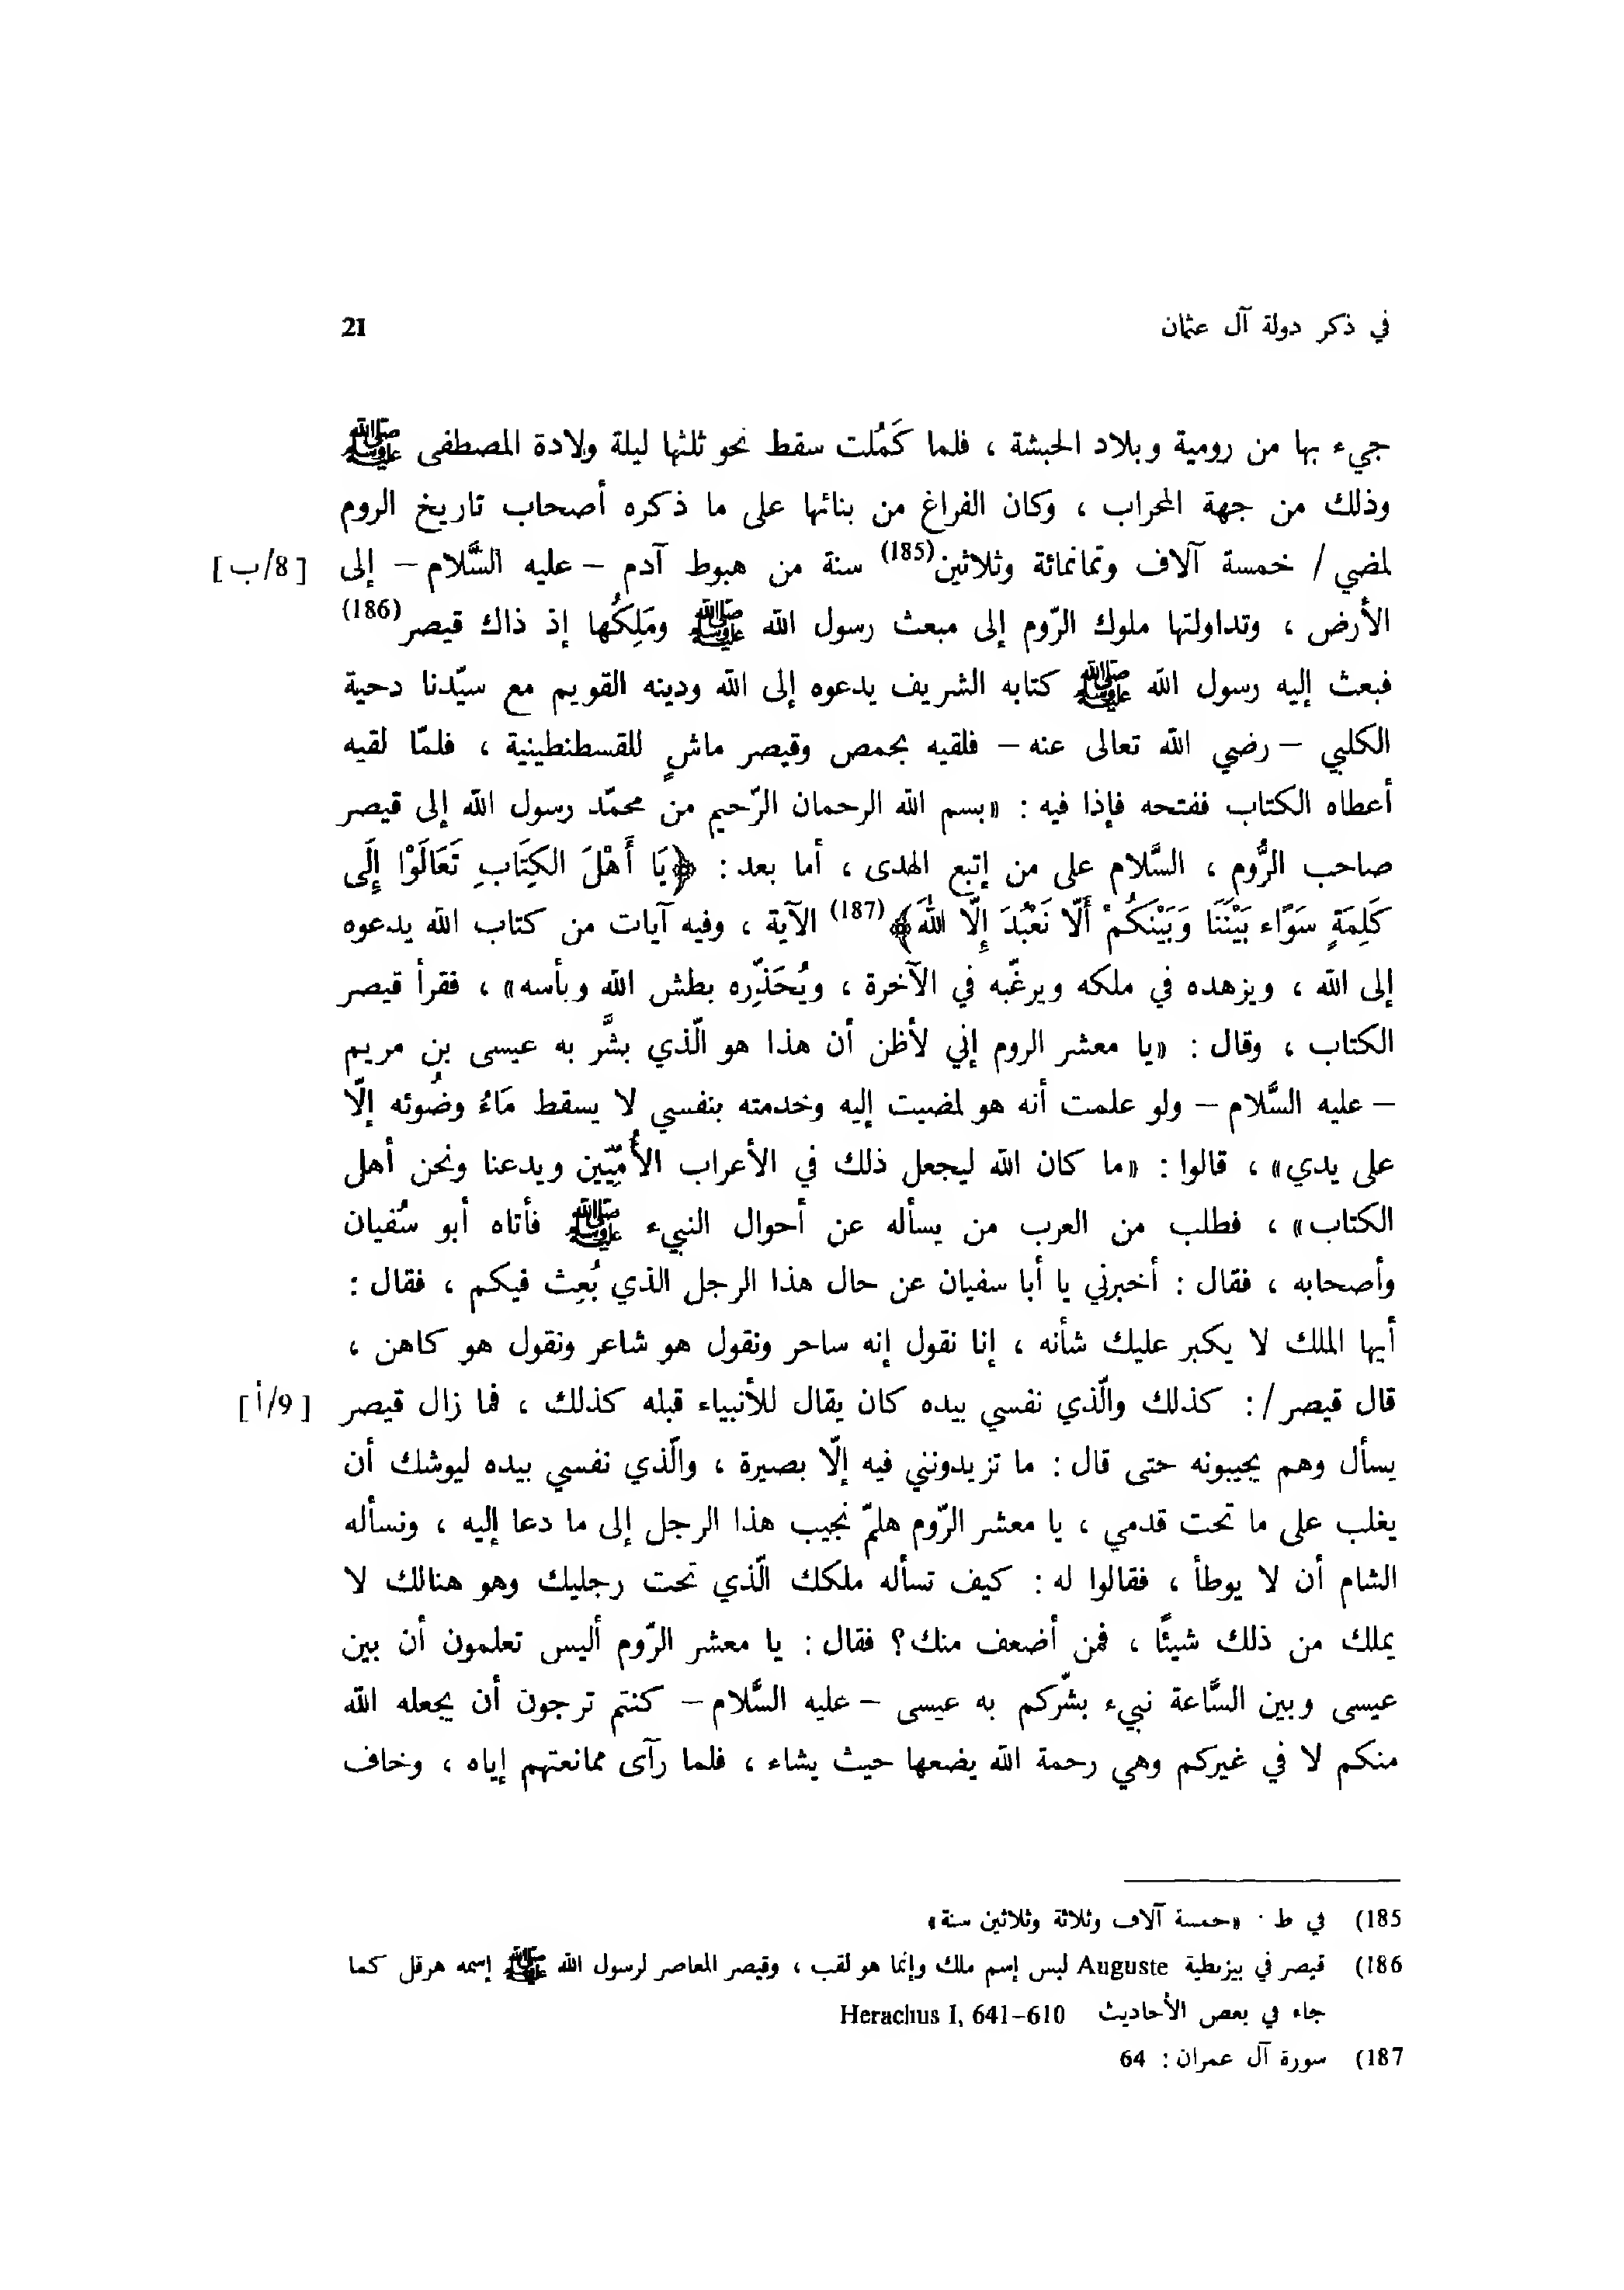 في ذكر دولة آل عثمان 21
جيء بها من رومية وبلاد الحبشة ، فلما كَمُلت سقط نحو ثلثها ليلة ولادة المصطفى ﷺ
وذلك من جهة المحراب ، وكان الفراغ من بنائها على ما ذكره أصحاب تاريخ الروم
لمضي / خمسة آلاف وثمانمائة وثلاثين(185) سنة من هبوط آدم – عليه السَّلام – إلى [8/ب]
الأرض ، وتداولتها ملوك الرّوم إلى مبعث رسول الله ﷺ ومَلِكُها إذ ذاك قيصر(186)
فبعث إليه رسول الله ﷺ كتابه الشريف يدعوه إلى الله ودينه القويم مع سيّدنا دحية
الكلبي – رضي الله تعالى عنه – فلقيه بحمص وقيصر ماشٍ للقسطنطينية ، فلمّا لقيه
أعطاه الكتاب ففتحه فإذا فيه : «بسم الله الرحمان الرّحيم من محمّد رسول الله إلى قيصر
صاحب الرُّوم ، السَّلام على من إتبع الهدى ، أما بعد : ﴿يَا أَهْلَ الكِتَابِ تَعَالَوْا إِلَى
كَلِمَةٍ سَوَاء بَيْنَنَا وَبَيْنَكُمْ أَلّا نَعْبُدَ إِلّا اللهَ﴾(187) الآية ، وفيه آيات من كتاب الله يدعوه
إلى الله ، ويزهده في ملكه ويرغّبه في الآخرة ، ويُحَذِّره بطش الله وبأسه» ، فقرأ قيصر
الكتاب ، وقال : «يا معشر الروم إني لأظن أن هذا هو الّذي بشَّر به عيسى بن مريم
– عليه السَّلام – ولو علمت أنه هو لمضيت إليه وخدمته بنفسي لا يسقط مَاءُ وضُوئه إلّا
على يدي» ، قالوا : «ما كان الله ليجعل ذلك في الأعراب الأُمِّيّين ويدعنا ونحن أهل
الكتاب» ، فطلب من العرب من يسأله عن أحوال النبيء ﷺ فأتاه أبو سُفيان
وأصحابه ، فقال : أخبرني يا أبا سفيان عن حال هذا الرجل الذي بُعِث فيكم ، فقال :
أيها الملك لا يكبر عليك شأنه ، إنا نقول إنه ساحر ونقول هو شاعر ونقول هو كاهن ،
قال قيصر /: كذلك والّذي نفسي بيده كان يقال للأنبياء قبله كذلك ، فما زال قيصر [9/أ]
يسأل وهم يجيبونه حتى قال : ما تزيدونني فيه إلّا بصيرة ، والّذي نفسي بيده ليوشك أن
يغلب على ما تحت قدمي ، يا معشر الرّوم هلمّ نجيب هذا الرجل إلى ما دعا إليه ، ونسأله
الشام أن لا يوطأ ، فقالوا له : كيف تسأله ملكك الّذي تحت رجليك وهو هنالك لا
يملك من ذلك شيئًا ، فمن أضعف منك؟ فقال : يا معشر الرّوم أليس تعلمون أن بين
عيسى وبين السَّاعة نبيء بشّركم به عيسى – عليه السَّلام – كنتم ترجون أن يجعله الله
منكم لا في غيركم وهي رحمة الله يضعها حيث يشاء ، فلما رآى ممانعتهم إياه ، وخاف
185) في ط : «خمسة آلاف وثلاثة وثلاثين سنة»
186) قيصر في بيزنطية Auguste ليس إسم ملك وإنما هو لقب ، وقيصر المعاصر لرسول الله ﷺ إسمه هرقل كما
جاء في بعض الأحاديث Heraclius I, 641-610
187) سورة آل عمران : 64